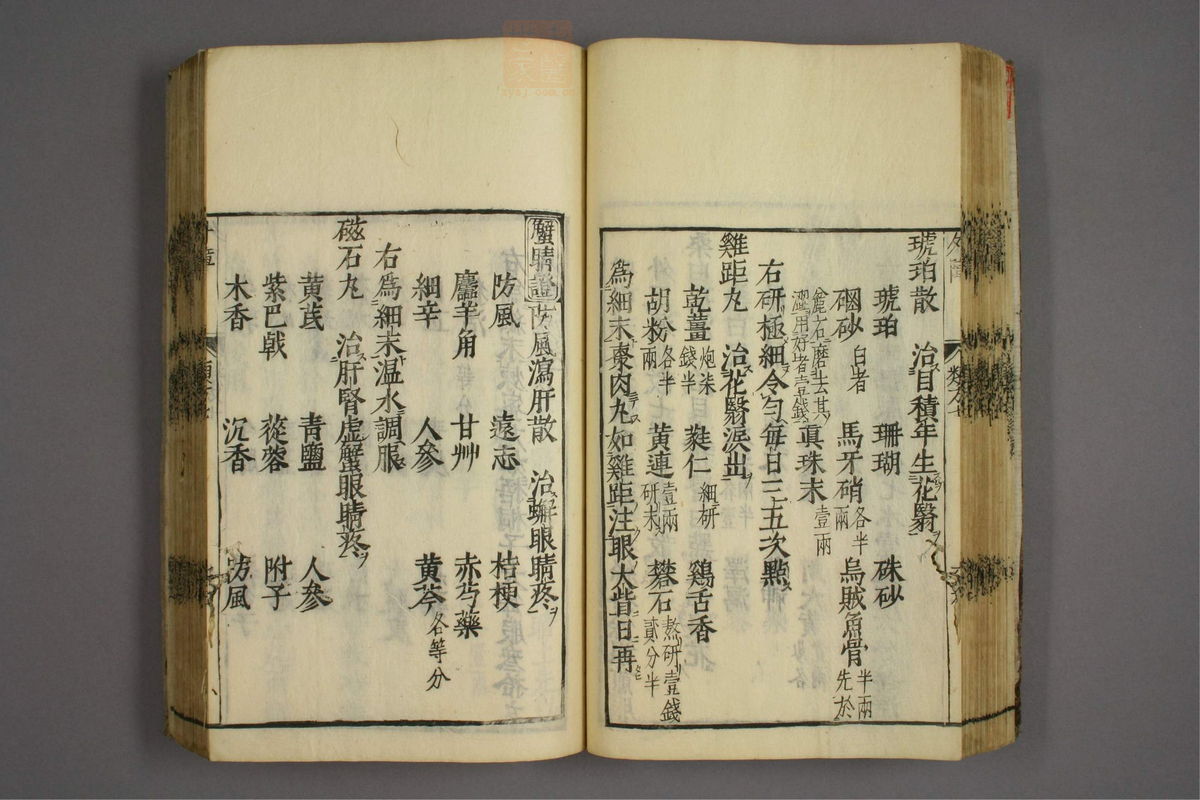 琥珀散　治目積年生花翳
琥珀　珊瑚　硃砂
硇砂白者　馬牙硝各半兩　烏賊魚骨半兩先於
麄石磨去其澀用好者壹錢　真珠末壹兩
右研極細令勻每日三五次點
雞距丸　治花翳淚出
乾薑炮柒錢半　蕤仁細研　鷄舌香
胡粉各半兩　黃連壹兩研末　礬石熬研壹錢貳分半
為細末棗肉丸如雞距注眼大眥日再
蟹睛證　防風瀉肝散　治蠏眼睛疼
防風　遠志　桔梗
麢羊角　甘艸　赤芍藥
細辛　人參　黃芩各等分
右為細末温水調服
磁石丸　治肝腎虛蟹眼睛疼
黃芪　青鹽　人參
紫巴戟　蓯蓉　附子
木香　沉香　防風